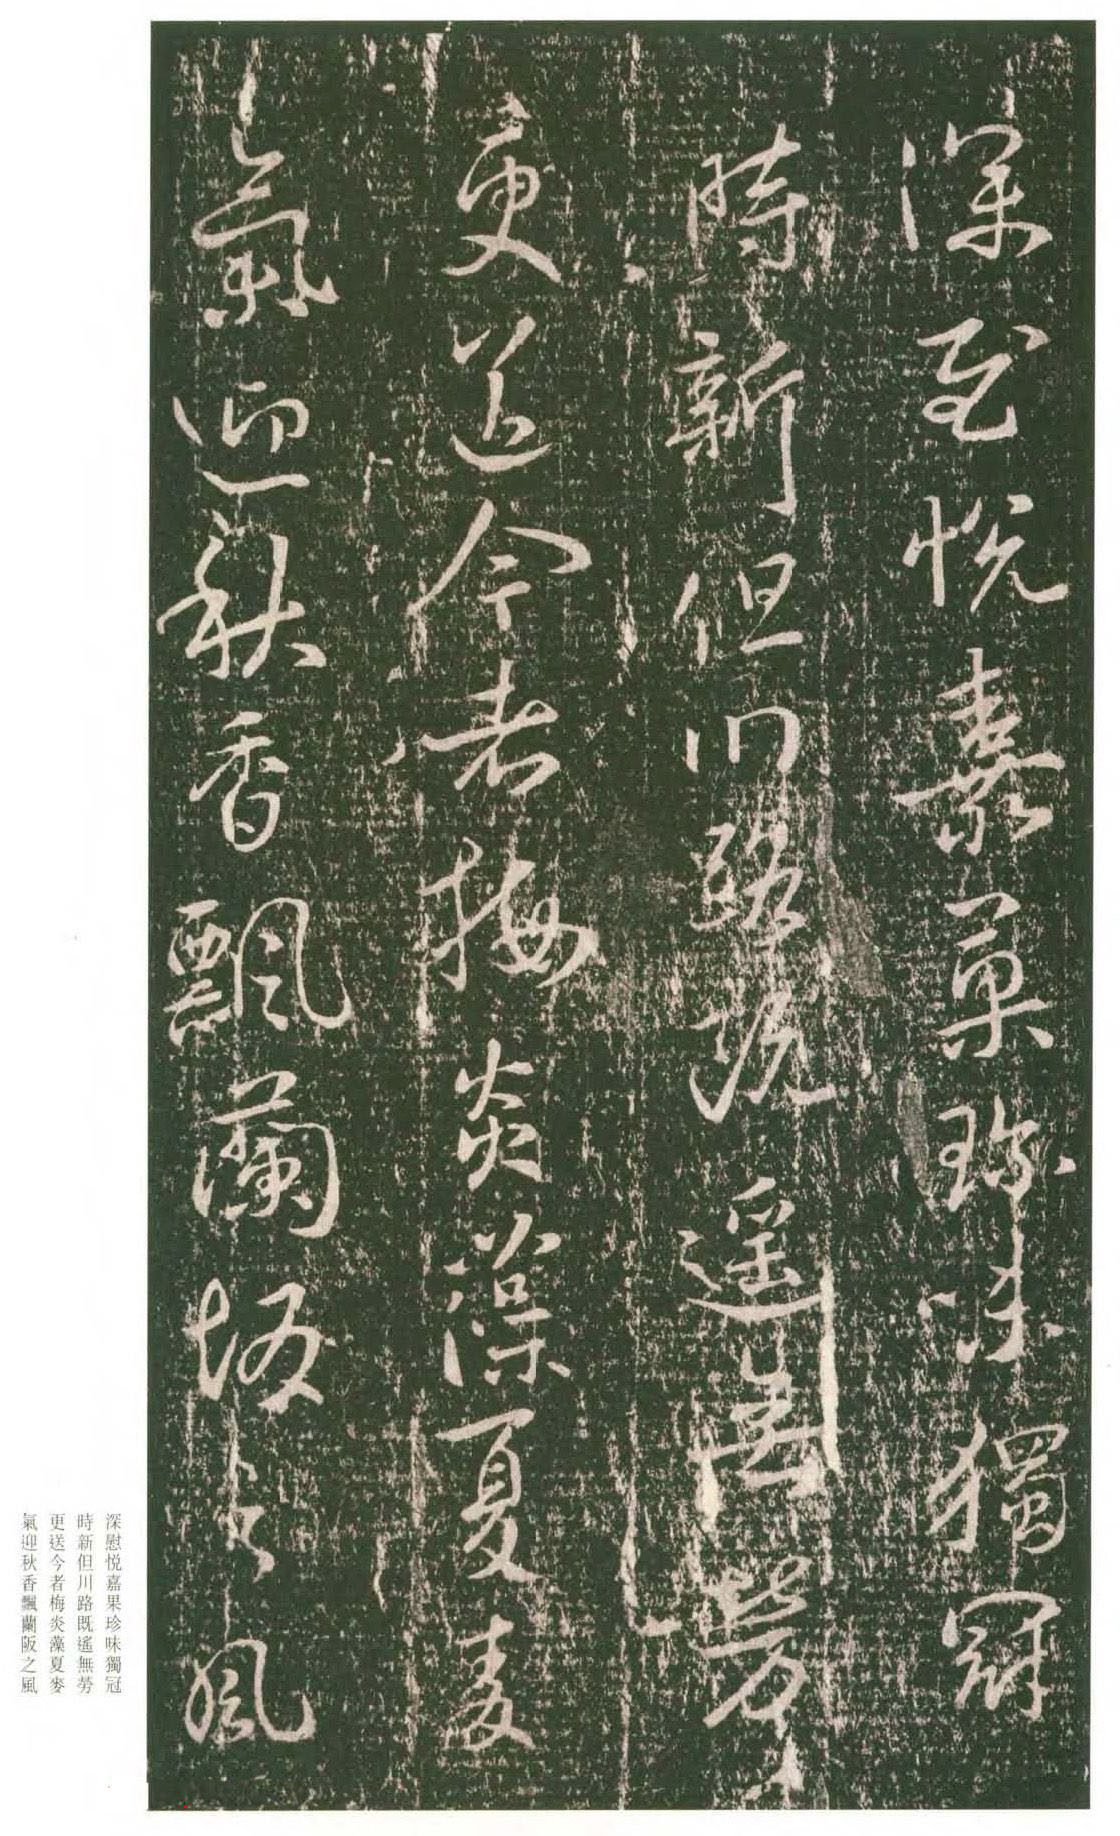 深慰悦嘉菓珍味獨冠
時新但川路既遥無勞
更送今者梅炎藻夏麦
氣迎秋香飄蘭坂之風
深慰悦嘉果珍味獨冠
時新但川路既遙無勞
更送今者梅炎藻夏麥
氣迎秋香飄蘭阪之風